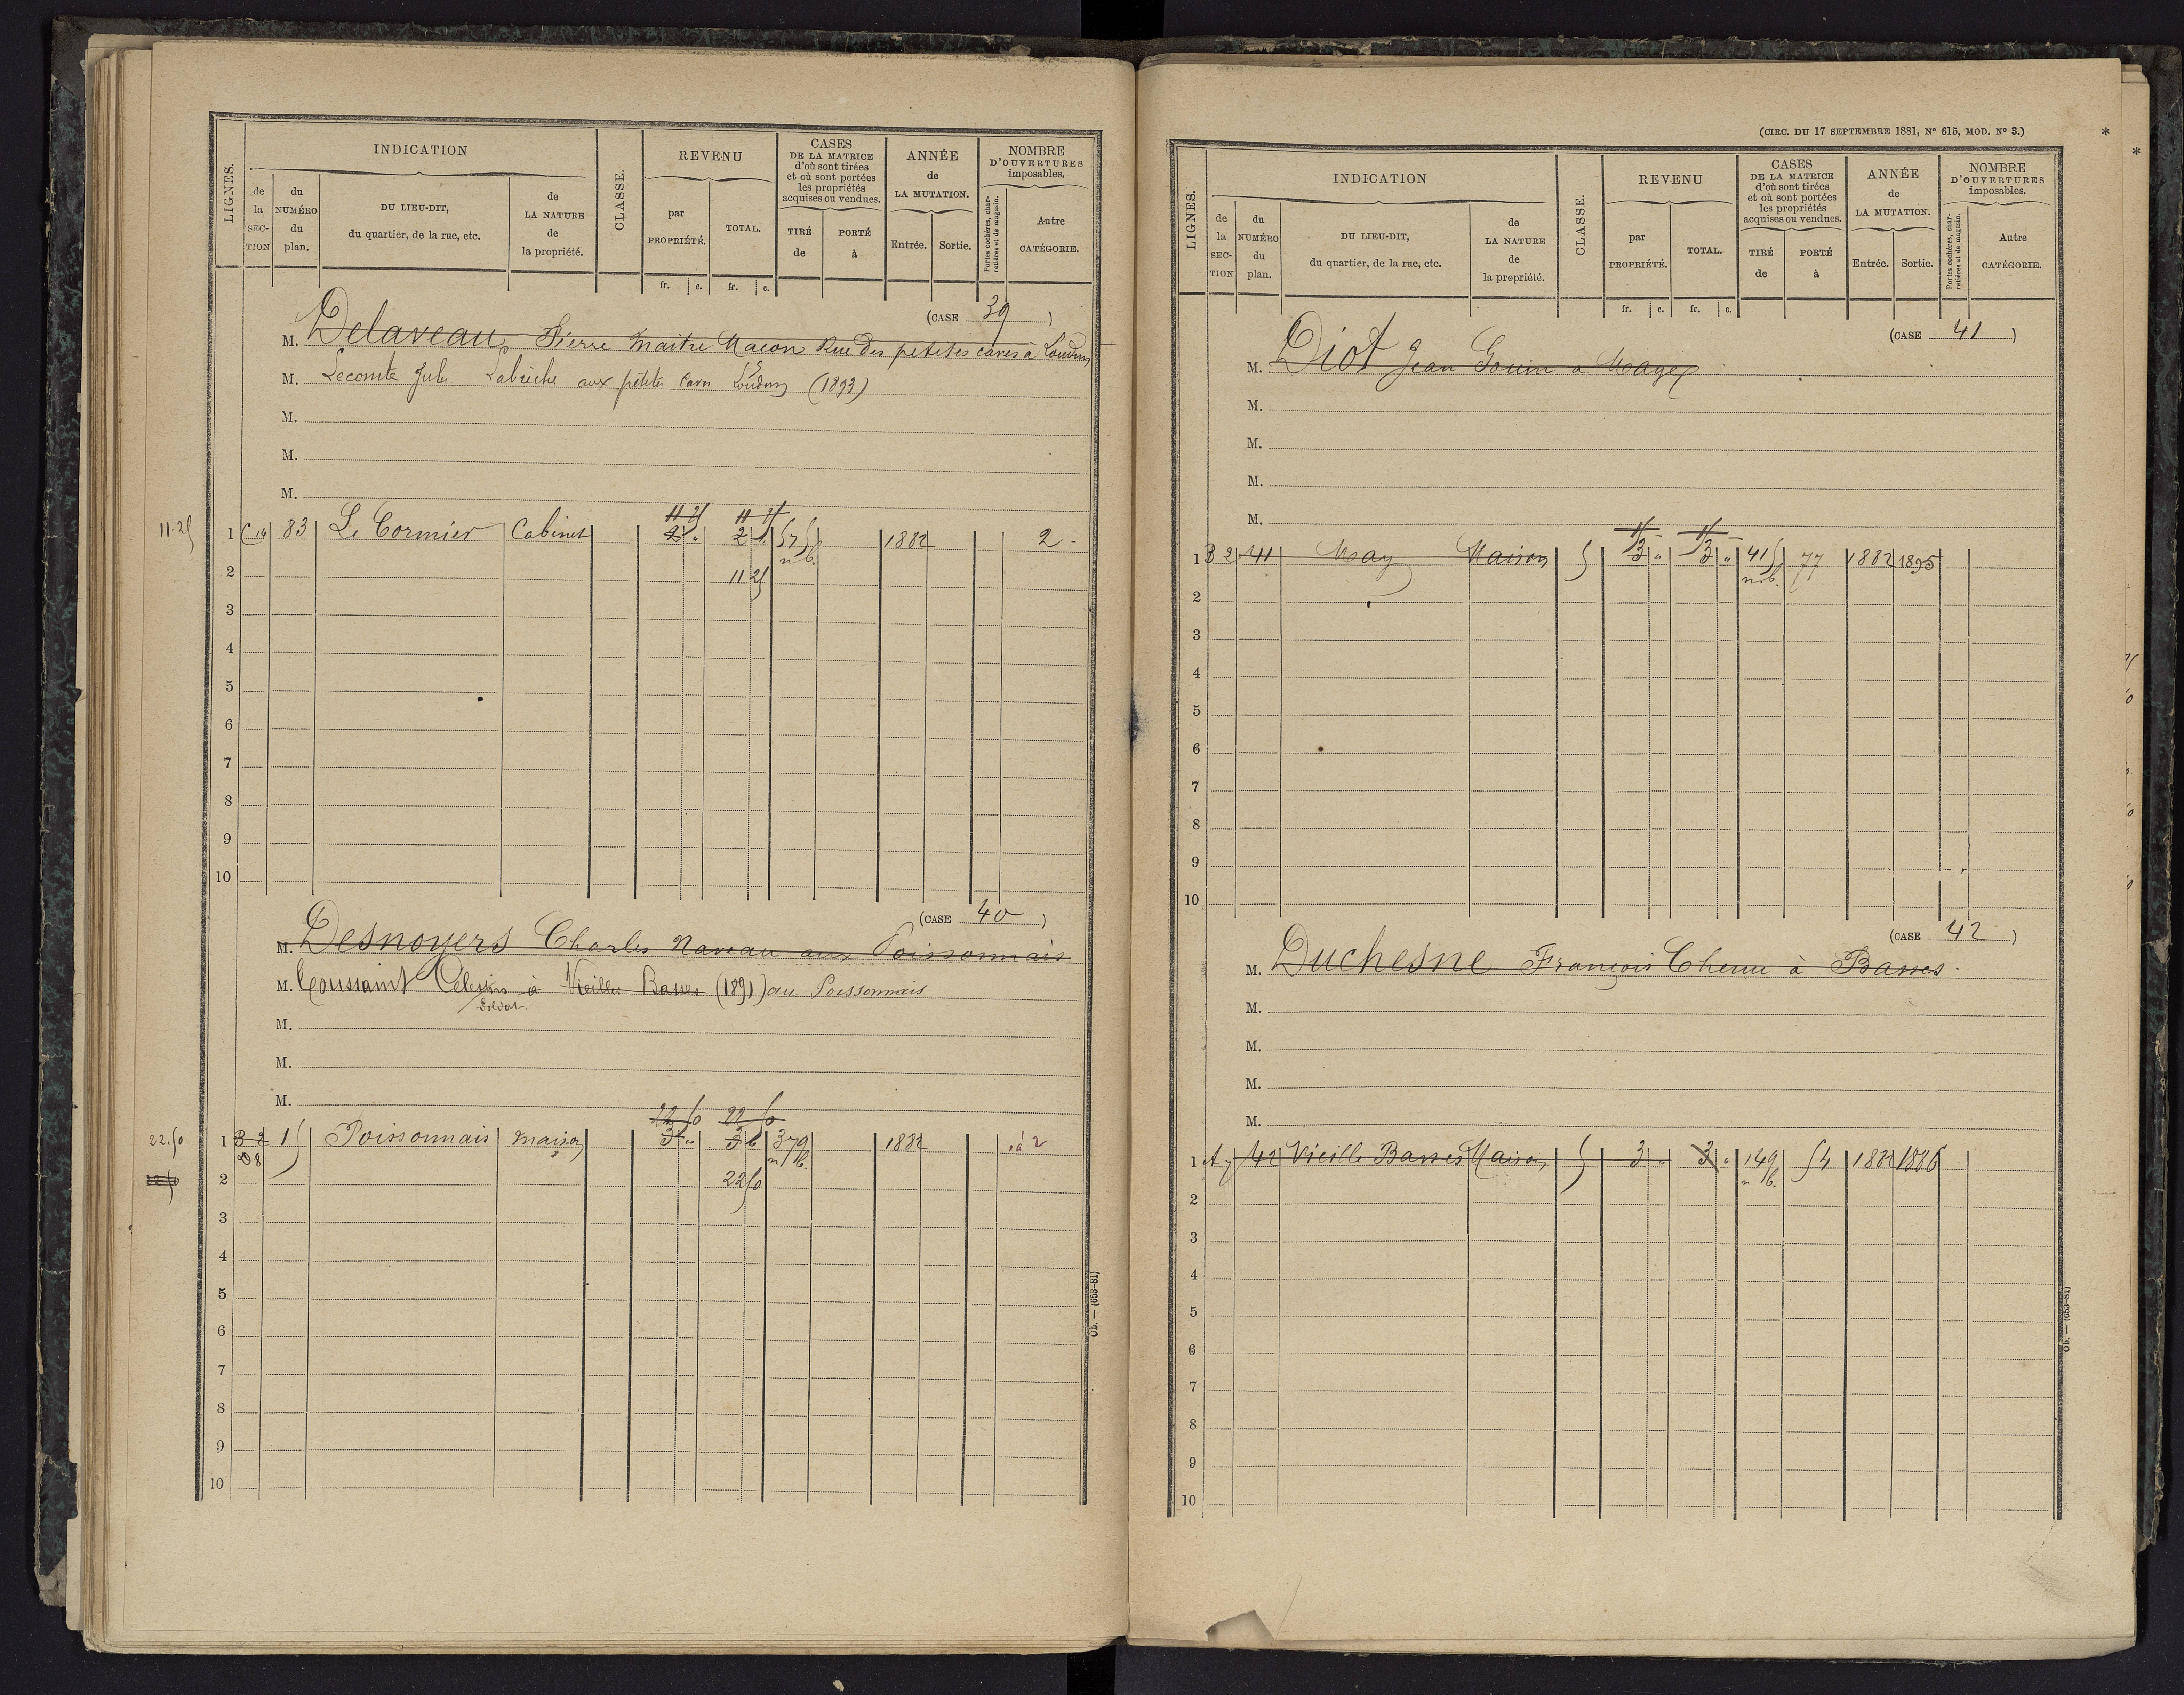 LIGNES.
INDICATION
de la SECTION
du NUMÉRO du plan.
DU LIEU-DIT, du quartier, de la rue, etc.
de LA NATURE de la propriété.
CLASSE.
REVENU
par PROPRIÉTÉ.
TOTAL.
CASES DE LA MATRICE d'où sont tirées et où sont portées les propriétés acquises ou vendues.
TIRÉ de
PORTÉ à
ANNÉE de LA MUTATION.
Entrée.
Sortie.
NOMBRE D'OUVERTURES imposables.
Portes cochères, charretières et de magasin.
Autre CATÉGORIE.
fr. c. fr. c.
(CASE 39)
M. Delaveau Pierre Maitre Macon Rue des petites caves à Loudun
M. Lecomte Jules Labrèche aux petites Caves Loudun (1893)
M.
M.
M.
11 25 11 25
11.25 1 C 14 83 Le Cormier Cabinet 2 " 2 57 1882 2
2 11 25
3
4
5
6
7
8
9
10
(CASE 40)
M. Desnoyers Charles Naveau aux Poissonnais
M. Toussaint Célestin à Vieilles Basses (1891) au Poissonnais
Soldat
M.
M.
M.
22 50 22 50
22.50 1 B 2 15 Poissonnais maison 3 " 3 379 1882 à 2
D 8
22 50 2 22 50
3
4
5
6
7
8
9
10
Ob. — (653-81)
(CIRC. DU 17 SEPTEMBRE 1881, Nº 615, MOD. Nº 3.)
*
*
LIGNES.
INDICATION
de la SECTION
du NUMÉRO du plan.
DU LIEU-DIT, du quartier, de la rue, etc.
de LA NATURE de la propriété.
CLASSE.
REVENU
par PROPRIÉTÉ.
TOTAL.
CASES DE LA MATRICE d'où sont tirées et où sont portées les propriétés acquises ou vendues.
TIRÉ de
PORTÉ à
ANNÉE de LA MUTATION.
Entrée.
Sortie.
NOMBRE D'OUVERTURES imposables.
Portes cochères, charretières et de magasin.
Autre CATÉGORIE.
fr. c. fr. c.
(CASE 41)
M. Diot Jean Gouin a Maye
M.
M.
M.
M.
15 15
1 B 2 41 May Maison 5 3 " 3 " 415 77 1882 1895
n b.
2
3
4
5
6
7
8
9
10
(CASE 42)
M. Duchesne François Chenu à Basses
M.
M.
M.
M.
1 A 7 42 Vieille Basses Maison 5 3 " 3 " 149 54 1882 1886
n b.
2
3
4
5
6
7
8
9
10
Ob. — (653-81)